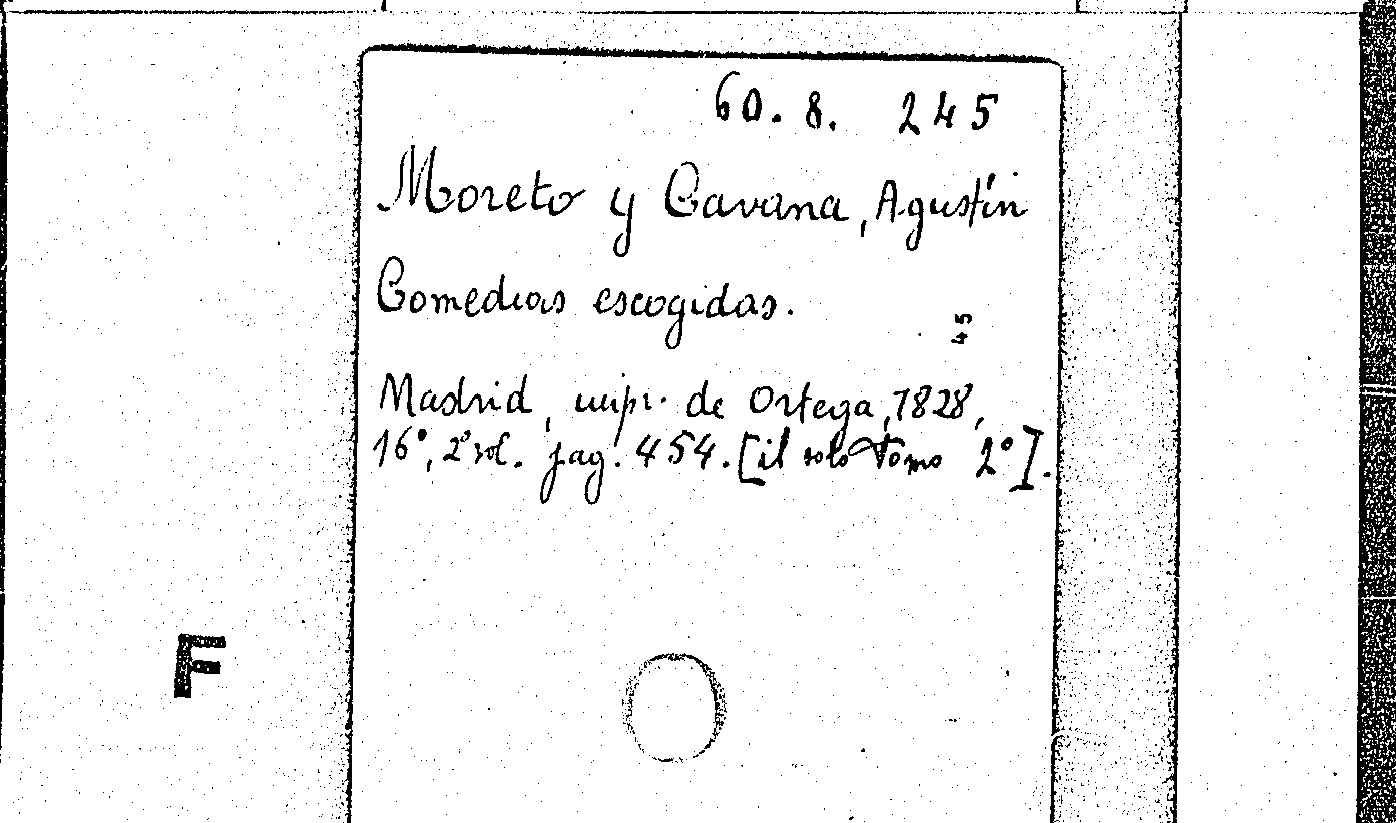 60. 8. 245
Moreto y Cavana, Agustín
Comedias escogidas.
45
Madrid, impr. de Ortega, 1828,
16°, 2° vol. pag. 454. [il solo Tomo 2°].
F